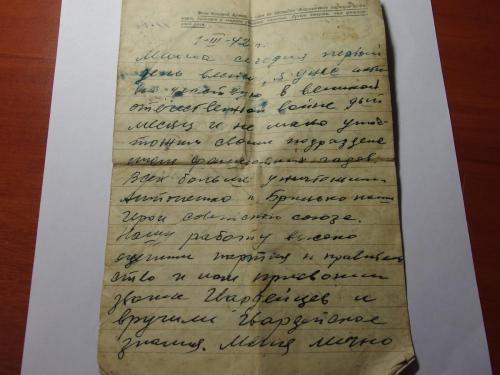 1-III-42 г.
Мама сегодня первый
день весны, я уже
участвую в великой
отечественной войне
месяц и не мало унич
тожил своим подразделе
нием фашистских гадов.
Всех больше уничтожили
Антоненко и Бринько наши
Герои советского союза.
Нашу работу высоко
оценили партия и правитель
ство и нам присвоили
звание Гвардейцев и
вручили Гвардейское
знамя. Меня лично